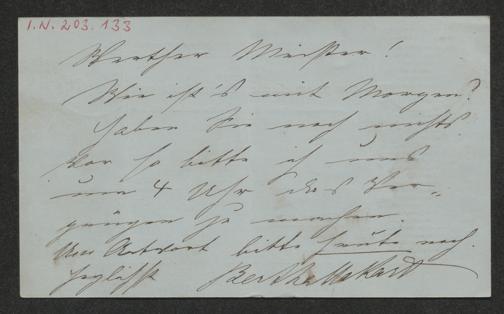 I.N. 203.133
Werther Meister!
Wie ist's mit Morgen?
Haben Sie noch nichts
vor so bitte ich uns
um 4 Uhr das Ver-
gnügen zu machen.
Um Antwort bitte heute noch.
herzlichst Bertha Makart